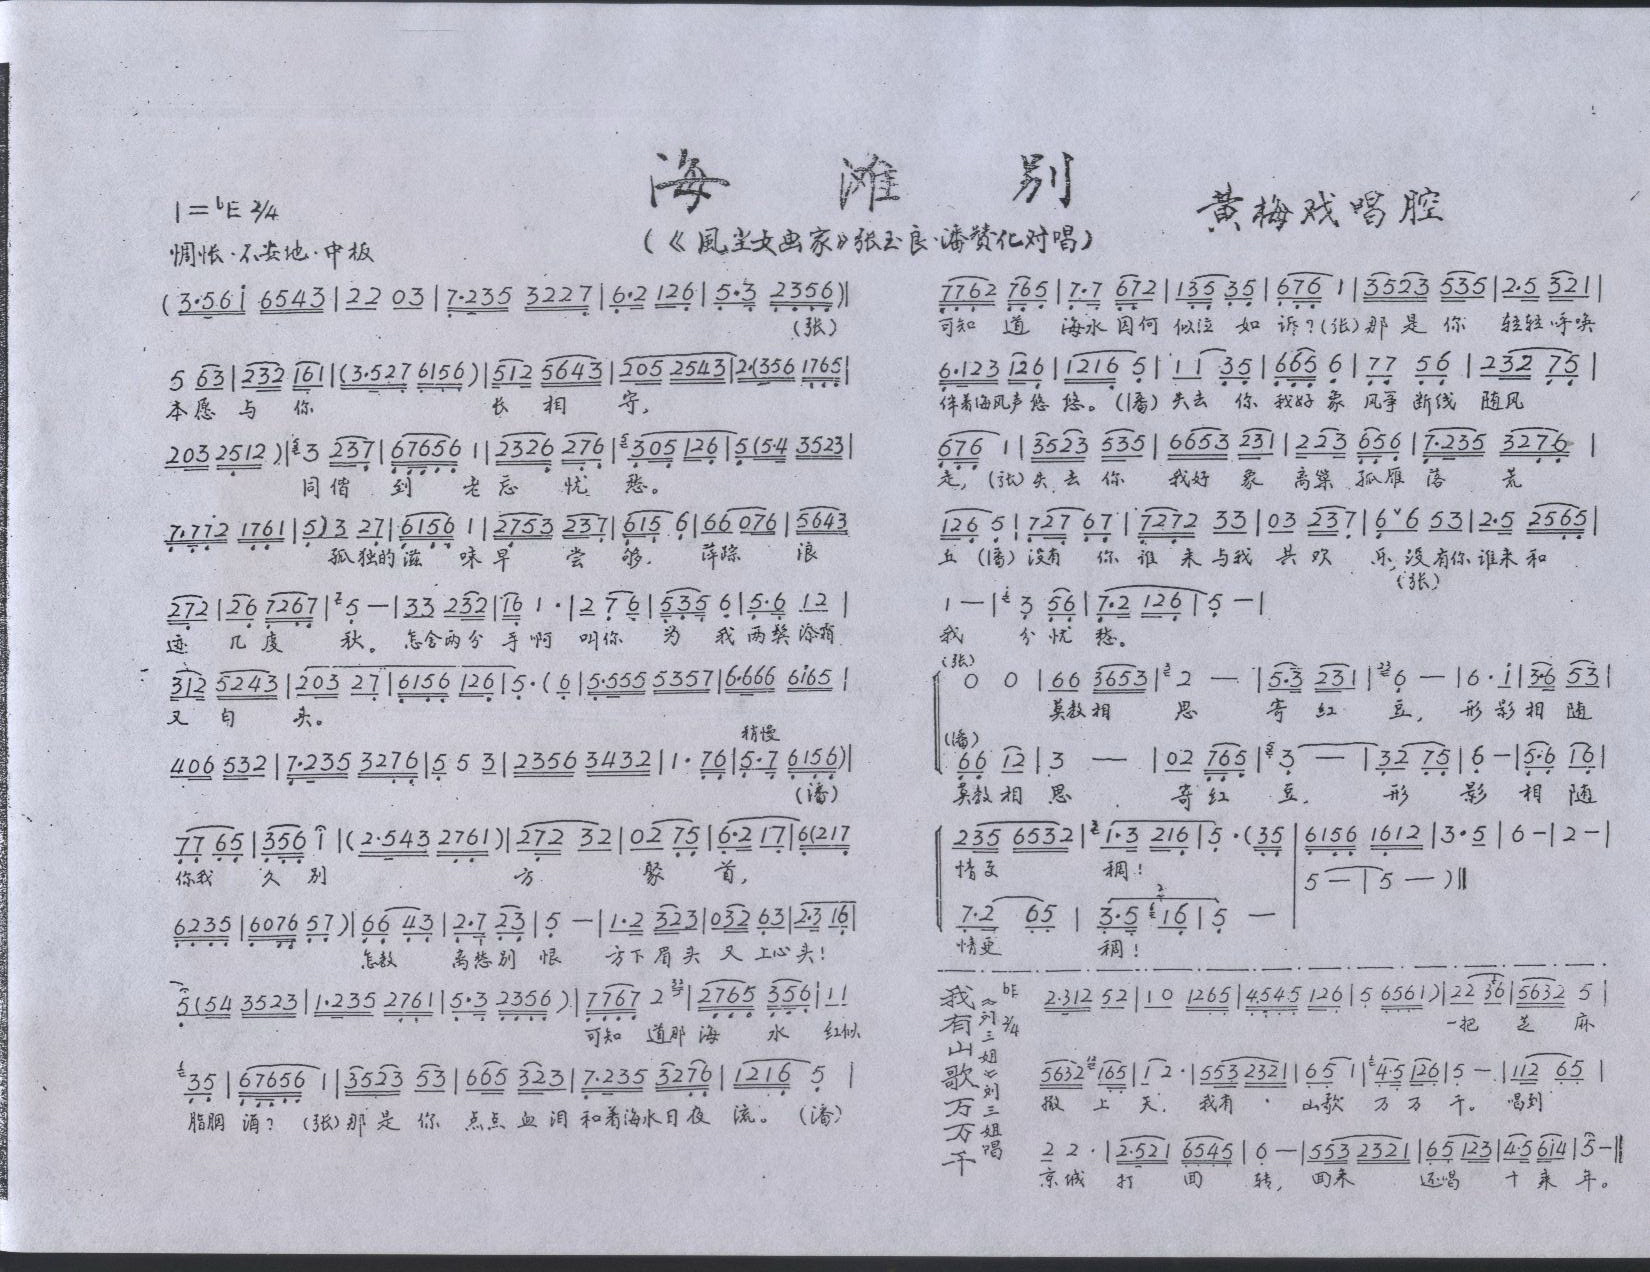 海 滩 别
黄梅戏唱腔
(《風尘女画家》张玉良·潘赞化对唱)
1=bE 2/4
惆怅·不安地·中板
(3·56i 6543|22 03|7·235 3227|6·2 126|5·3 2356)|
(张)
5 63|232 161|(3·527 6156)|512 5643|205 2543|2·(356 1765|
本愿 与 你 长 相 守,
203 2512)|3 237|67656 1|2326 276|305 126|5(5·4 3523|
同偕 到 老 忘 忧 愁。
7·772 1761|5)3 27|6156 1|2753 237|615 6|66 076|5643
孤独的滋 味 早 尝 够, 萍踪 浪
272|26 7267|5 —|33 232|16 1·|2 76|535 6|5·6 12|
迹 几度 秋。 怎舍两分 手啊 叫你 为 我两鬓添霜
312 5243|203 27|6156 126|5·(6|5·555 5357|6·666 6i65|
又 白 头。
稍慢
406 532|7·235 3276|5 5 3|2356 3432|1·76|5·7 6156)|
(潘)
77 65|356 i|(2·543 2761)|272 32|02 75|6·2 17|6(217
你我 久 别 方 聚 首,
6235|6076 57)|66 43|2·7 23|5 —|1·2 323|032 63|2·3 16|
怎教 离愁别 恨 方下眉头 又 上心头!
5(54 3523|1·235 2761|5·3 2356)|7767 2|2765 356|11
可知 道那 海 水 红似
35|67656 1|3523 53|665 323|7·235 3276|1216 5|
胭脂 洒? (张)那 是 你 点点 血 泪 和着海水日夜 流。 (潘)
7762 765|7·7 672|135 35|676 1|3523 535|2·5 321|
可知 道 海水 因何 似泣 如 诉?(张)那 是 你 轻轻 呼唤
6·123 126|1216 5|11 35|665 6|77 56|232 75|
伴着海风声悠 悠。(潘) 失去 你 我好 象 风筝 断线 随风
676 1|3523 535|6653 231|223 656|7·235 3276|
走,(张)失 去 你 我好 象 离巢 孤雁 落 荒
126 5|727 67|7272 33|03 237|6ˇ6 53|2·5 2565|
丘 (潘)没有 你 谁 来 与我 共 欢 乐,没有你谁来和
(张)
1 —|3 56|7·2 126|5 —|
我 分忧 愁。
(张)
0 0|66 3653|2 —|5·3 231|6 —|6·i|3·6 53|
莫教相 思 寄 红 豆, 形影相 随
(潘)
66 12|3 —|02 765|3 —|32 75|6 —|5·6 16|
莫教相 思 寄红 豆, 形 影 相 随
235 6532|1·3 216|5·(35|6156 1612|3·5|6 —|2 —|
情更 稠!
5 —|5 —)‖
7·2 65|3·5 16|5 —
情更 稠!
我有山歌万万千
《刘三姐》刘三姐唱
bE 2/4
2·312 52|10 1265|4545 126|5 6561)|22 36|5632 5|
一把 芝 麻
5632 165|12·|553 2321|65 1|4·5 126|5 —|112 65|
撒 上 天, 我有 山歌 万 万 千。 唱到
2 2·|2·521 6545|6 —|553 2321|65 123|4·5 614|5 —‖
京城 打 回 转, 回来 还唱 十 来 年。